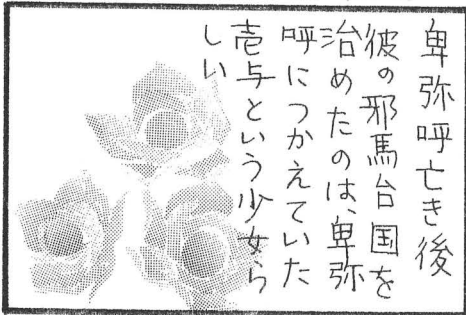 卑弥呼亡き後
彼の邪馬台国を
治めたのは、卑弥
呼につかえていた
壱与という少女ら
しい